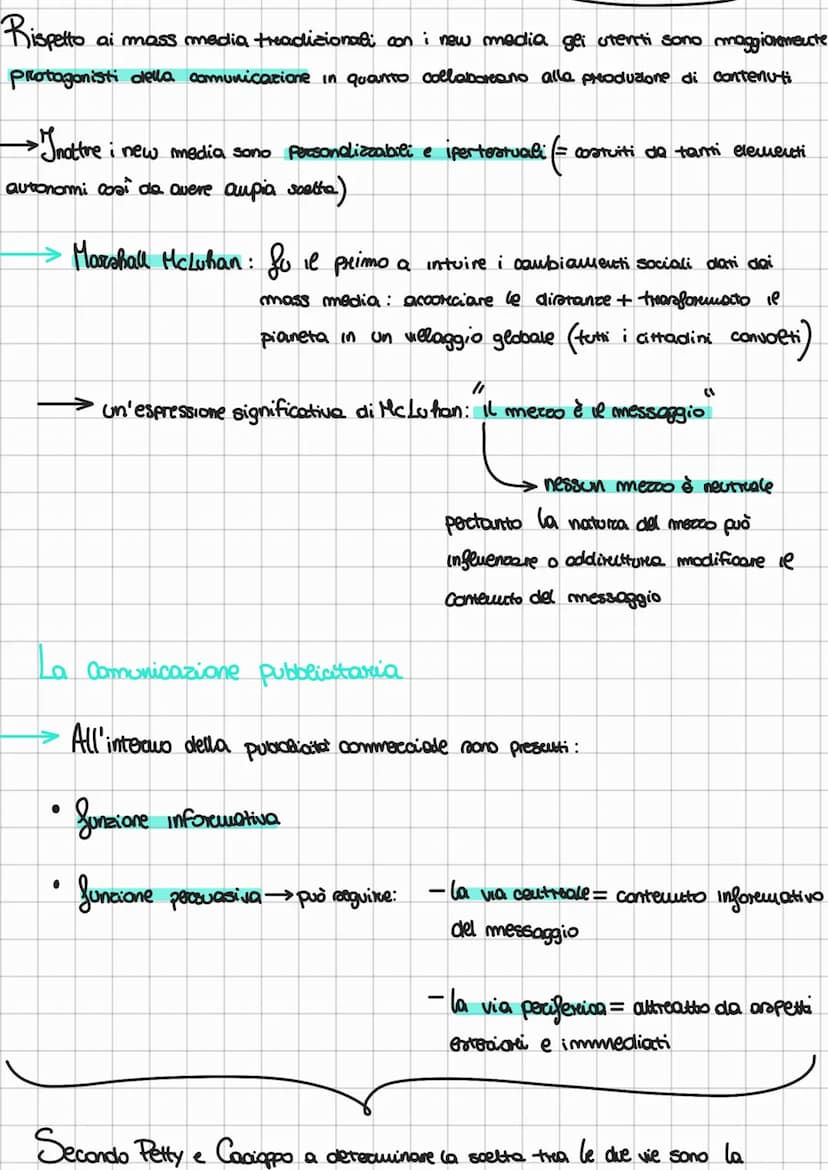 Rispetto ai mass media tradizionali con i new media gli utenti sono maggiormente
protagonisti della comunicazione in quanto collaborano alla produzione di contenuti
→ Inoltre i new media sono personalizzabili e ipertestuali (= costruiti da tanti elementi
autonomi così da avere ampia scelta)
→ Marshall McLuhan: fu il primo a intuire i cambiamenti sociali dati dai
mass media: accorciare le distanze + trasformato il
pianeta in un villaggio globale (tutti i cittadini convolti)
→ un'espressione significativa di McLuhan: "il mezzo è il messaggio"
→ nessun mezzo è neutrale
pertanto la natura del mezzo può
influenzare o addirittura modificare il
contenuto del messaggio
La comunicazione pubblicitaria
→ All'interno della pubblicità commerciale sono presenti:
• funzione informativa
• funzione persuasiva → può seguire: – la via centrale = contenuto informativo
del messaggio
– la via periferica = attratto da aspetti
esteriori e immmediati
Secondo Petty e Cacioppo a determinare la scelta tra le due vie sono la